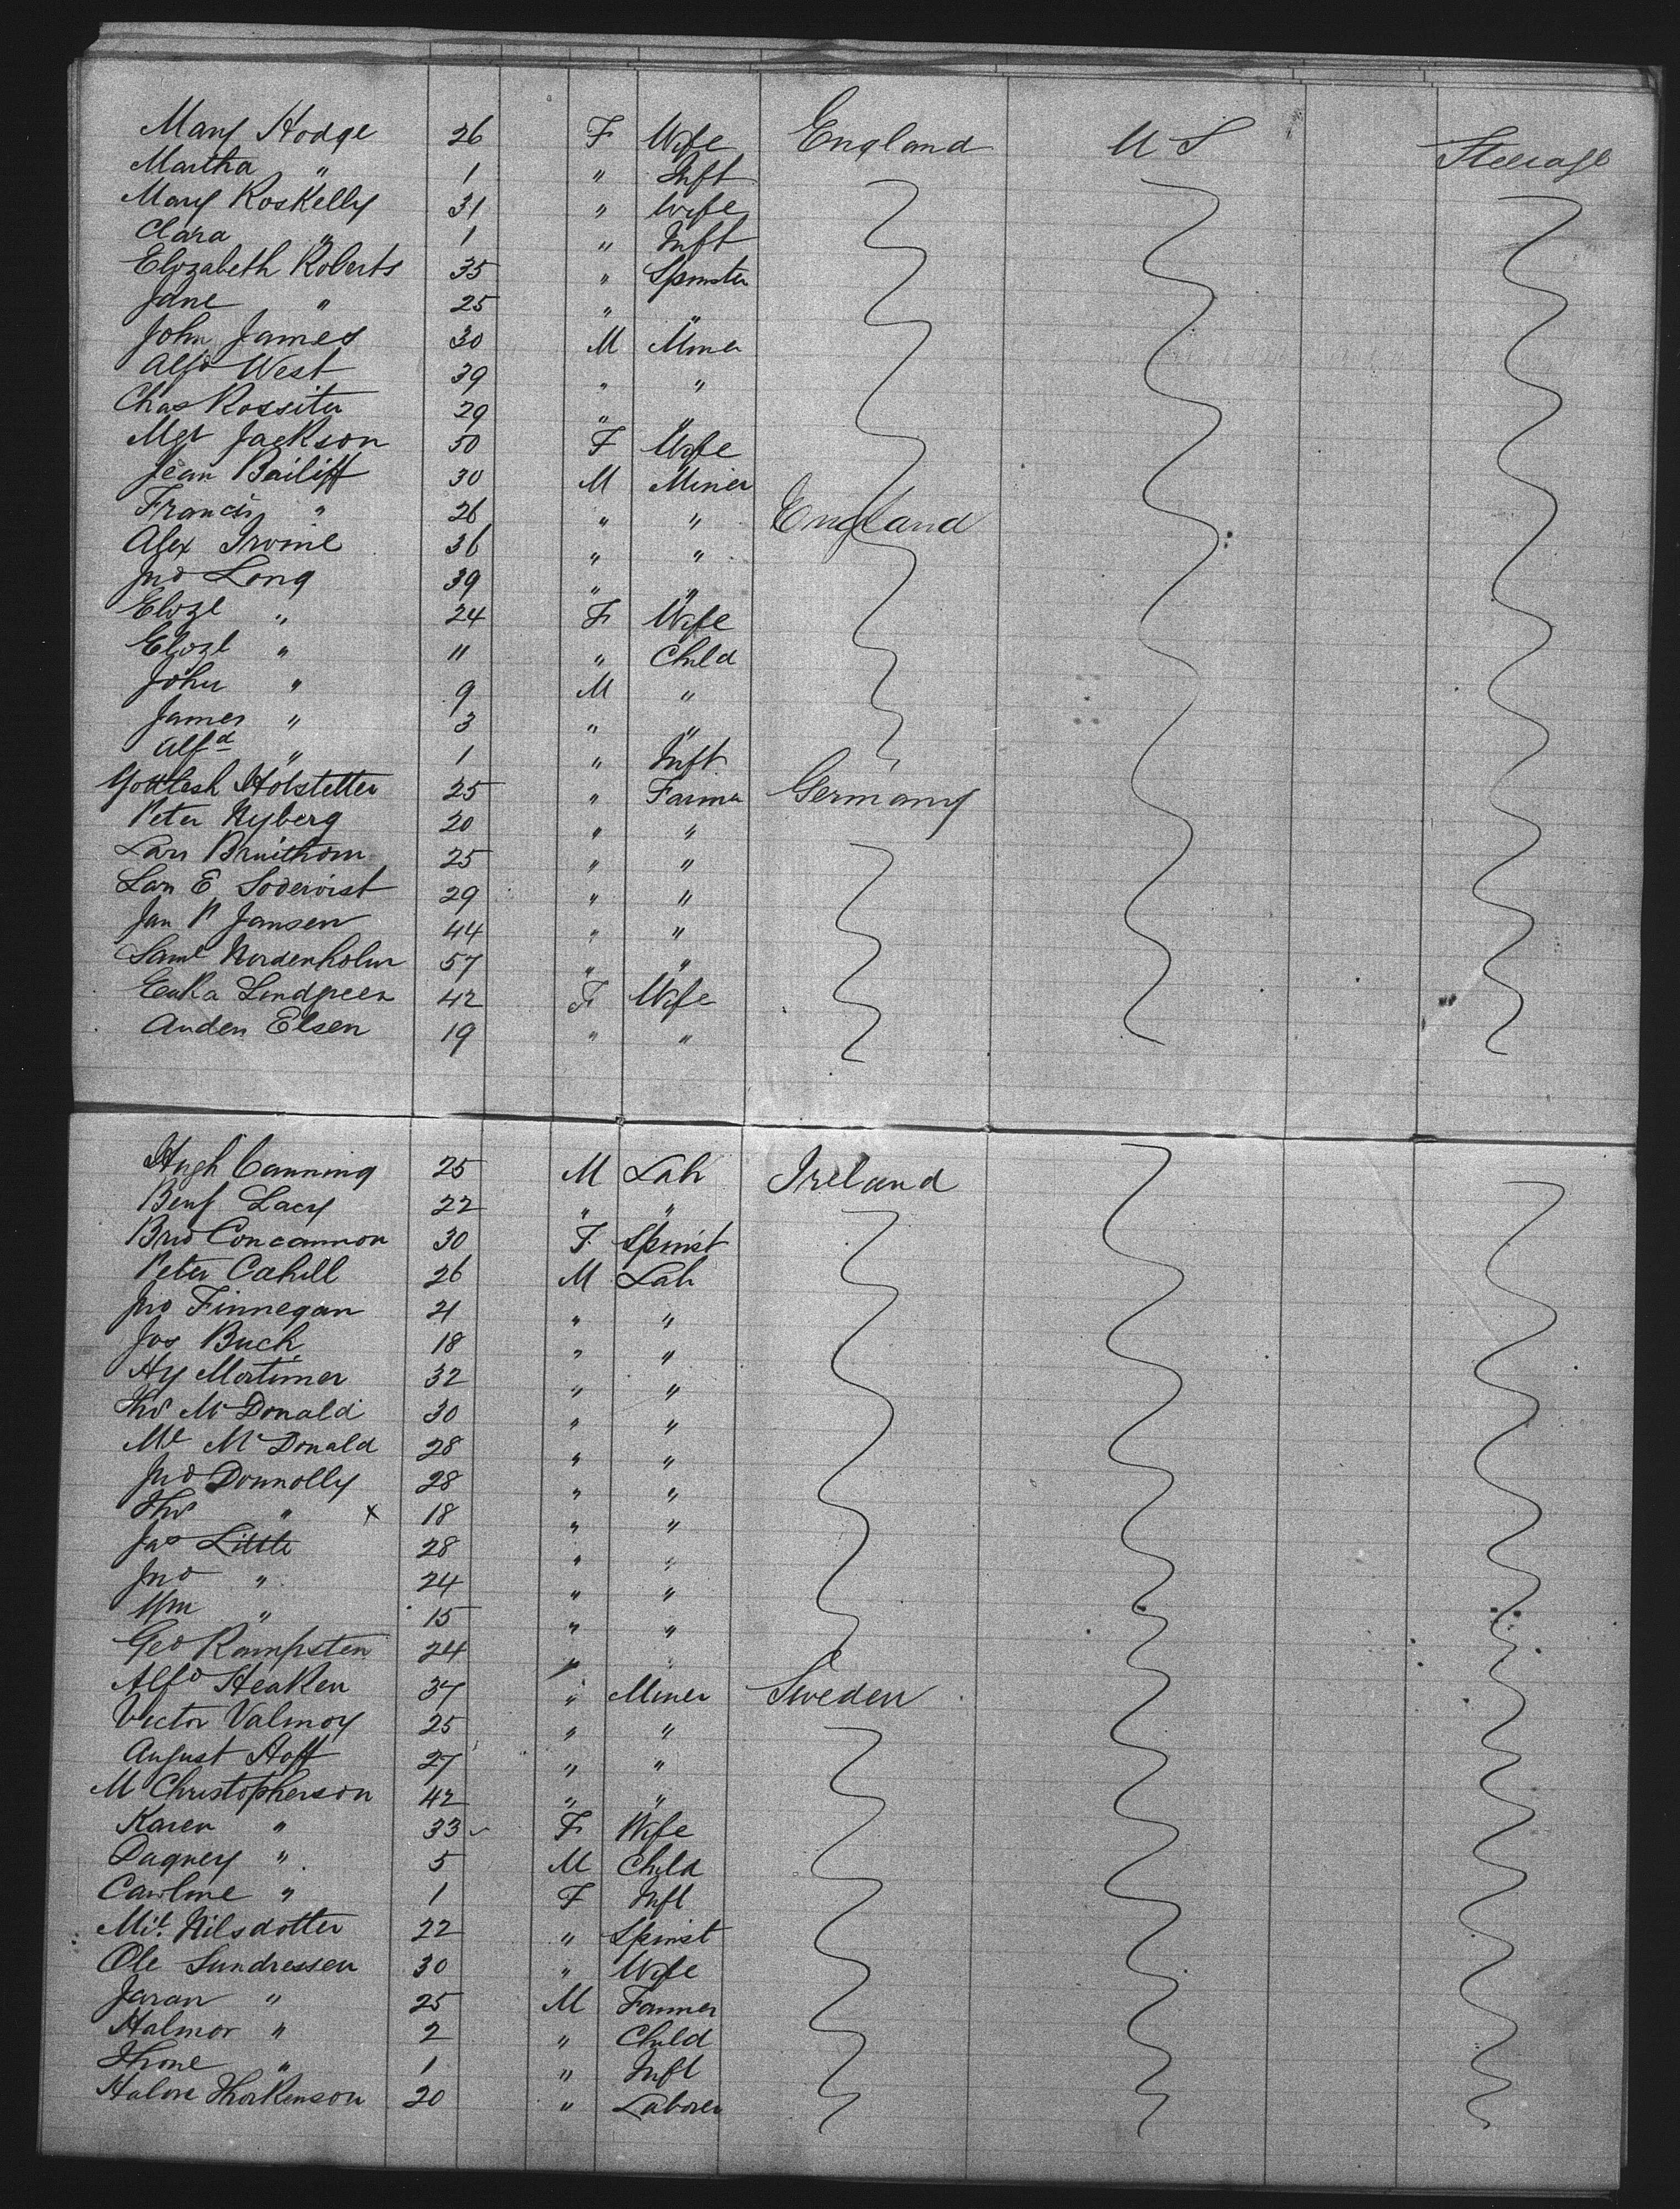 Mary Hodge 26 F Wife England U S Steerage
Martha " 1 " Inft
Mary Roskelly 31 " Wife
Clara " 1 " Inft
Elizabeth Roberts 35 " Spinster
Jane " 25 " "
John James 30 M Miner
Alfd West 39 " "
Chas Rossiter 29 " "
Mgt Jackson 50 F Wife
Jean Bailiff 30 M Miner
Francis " 26 " " England
Alex Irvine 36 " "
Jno Long 39 " "
Elize " 24 F Wife
Elizt " 11 " Child
John " 9 M "
James " 3 " "
Alfd " 1 " Inft
Holstetter 25 " Farmer Germany
Peter Nyberg 20 " "
Lars 25 " "
Lars E 29 " "
Jan P Jansen 44 " "
Saml Nordenholm 57 " "
Lindgreen 42 F Wife
Anden Elsen 19 " "
Hugh Canning 25 M Lab Ireland
Benj Lacy 22 " "
Brid Concannon 30 F Spinst
Peter Cahill 26 M Lab
Jno Finnegan 21 " "
Jos Buch 18 " "
Hy Mortimer 32 " "
Ths McDonald 30 " "
Ml McDonald 28 " "
Jno Donnolly 28 " "
Ths " x 18 " "
Jas Little 28 " "
Jno " 24 " "
Wm " 15 " "
Geo Rampsten 24 " "
Alfd Heaken 37 " Miner Sweden
Victor Valmoy 25 " "
August Hoff 27 " "
M Christopherson 42 " "
Karen " 33 F Wife
Dagney " 5 M Child
Caroline " 1 F Inft
Nilsdotter 22 " Spinst
Ole Sundressen 30 " Wife
Jaran " 25 M Farmer
Halmor " 2 " Child
Thone " 1 " Inft
Halvre Thorkenson 20 " Laborer